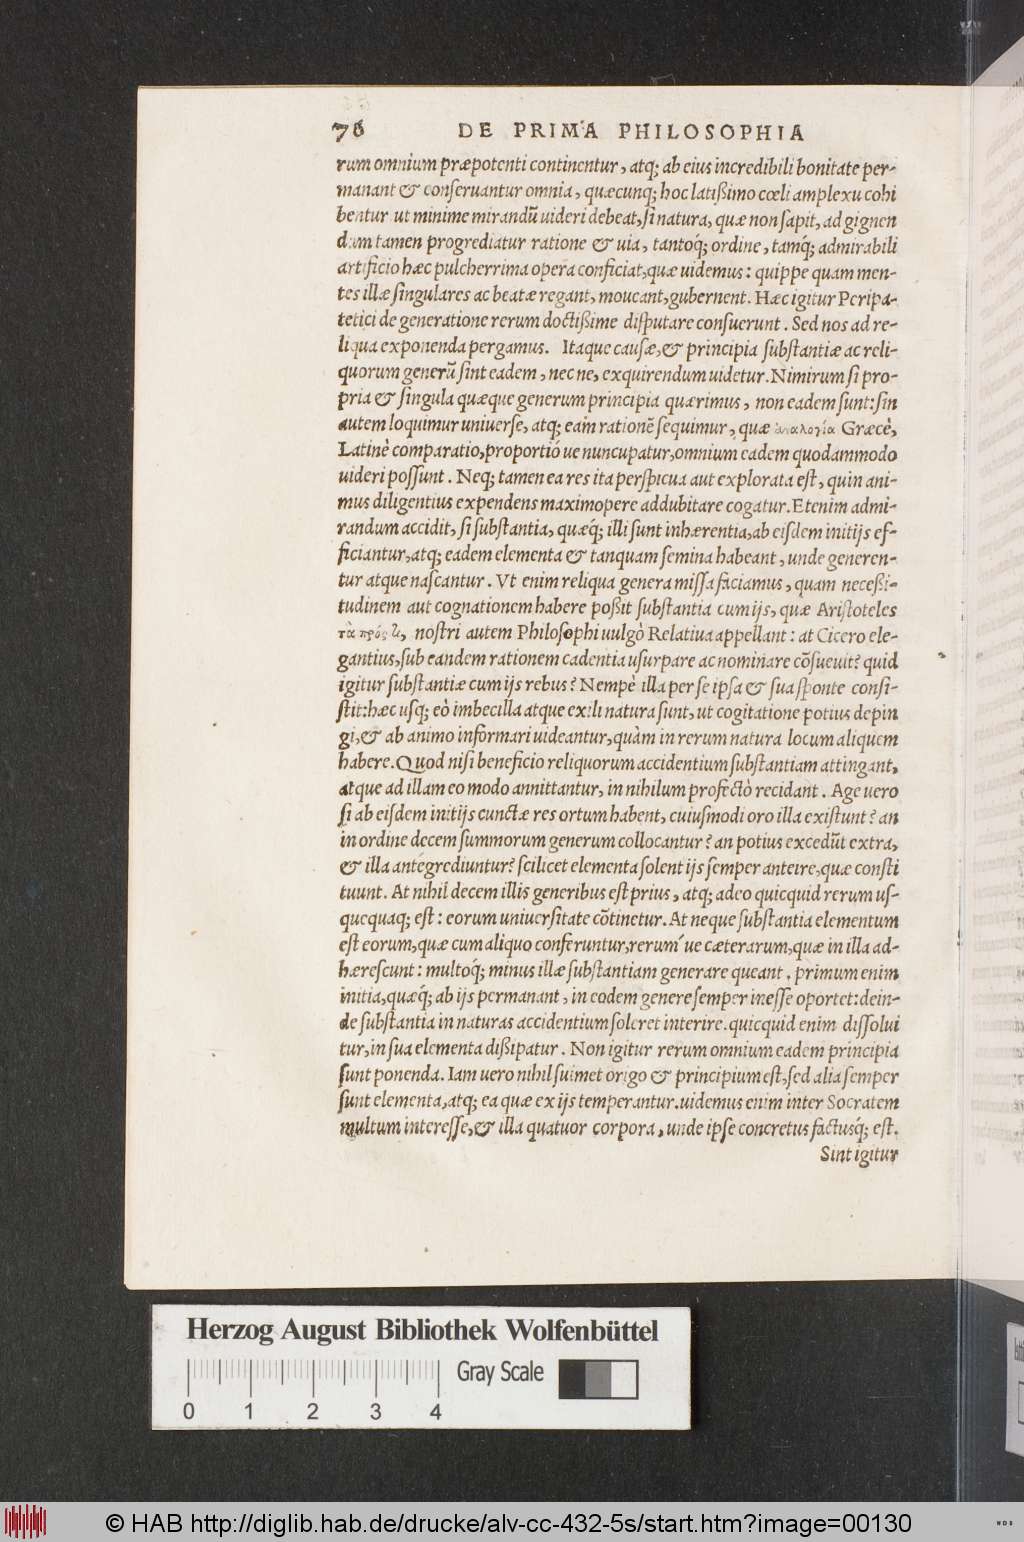 76 DE PRIMA PHILOSOPHIA
rum omnium præpotenti continentur, atq; ab eius incredibili bonitate per-
manant & conseruantur omnia, quæcunq; hoc latißimo cœli amplexu cohi
bentur ut minime mirandũ uideri debeat, si natura, quæ non sapit, ad gignen
dum tamen progrediatur ratione & uia, tantoq́; ordine, tamq́; admirabili
artificio hæc pulcherrima opera conficiat, quæ uidemus: quippe quam men-
tes illæ singulares ac beatæ regant, moueant, gubernent. Hæc igitur Peripa-
tetici de generatione rerum doctißime disputare consuerunt. Sed nos ad re-
liqua exponenda pergamus. Itaque causæ, & principia substantiæ ac reli-
quorum generũ sint eadem, nec ne, exquirendum uidetur. Nimirum si pro-
pria & singula quæque generum principia quærimus, non eadem sunt: sin
autem loquimur uniuerse, atq; eam rationẽ sequimur, quæ ἀναλογία Græcè,
Latinè comparatio, proportió ue nuncupatur, omnium eadem quodammodo
uideri possunt. Neq; tamen ea res ita perspicua aut explorata est, quin ani-
mus diligentius expendens maximopere addubitare cogatur. Etenim admi-
randum accidit, si substantia, quæq́; illi sunt inhærentia, ab eisdem initijs ef-
ficiantur, atq; eadem elementa & tanquam semina habeant, unde generen-
tur atque nascantur. Vt enim reliqua genera missa faciamus, quam neceßi-
tudinem aut cognationem habere poßit substantia cum ijs, quæ Aristoteles
τὰ πρός τι, nostri autem Philosophi uulgò Relatiua appellant: at Cicero ele-
gantius, sub eandem rationem cadentia usurpare ac nominare cõsueuit? quid
igitur substantiæ cum ijs rebus? Nempè illa per se ipsa & sua sponte consi-
stit: hæc usq; eò imbecilla atque exili natura sunt, ut cogitatione potius depin
gi, & ab animo informari uideantur, quàm in rerum natura locum aliquem
habere. Quod nisi beneficio reliquorum accidentium substantiam attingant,
atque ad illam eo modo annittantur, in nihilum profectò recidant. Age uero
si ab eisdem initijs cunctæ res ortum habent, cuiusmodi oro illa existunt? an
in ordine decem summorum generum collocantur? an potius excedũt extra,
& illa antegrediuntur? scilicet elementa solent ijs semper anteire, quæ consti
tuunt. At nihil decem illis generibus est prius, atq; adeo quicquid rerum us-
quequaq; est: eorum uniuersitate cõtinetur. At neque substantia elementum
est eorum, quæ cum aliquo conferuntur, rerum´ue cæterarum, quæ in illa ad-
hærescunt: multoq́; minus illæ substantiam generare queant. primum enim
initia, quæq́; ab ijs permanant, in eodem genere semper inesse oportet: dein-
de substantia in naturas accidentium soleret interire. quicquid enim dissolui
tur, in sua elementa dißipatur. Non igitur rerum omnium eadem principia
sunt ponenda. Iam uero nihil suimet origo & principium est, sed alia semper
sunt elementa, atq; ea quæ ex ijs temperantur. uidemus enim inter Socratem
multum interesse, & illa quatuor corpora, unde ipse concretus factusq́; est.
Sint igitur
Herzog August Bibliothek Wolfenbüttel
Gray Scale
0 1 2 3 4
© HAB http://diglib.hab.de/drucke/alv-cc-432-5s/start.htm?image=00130